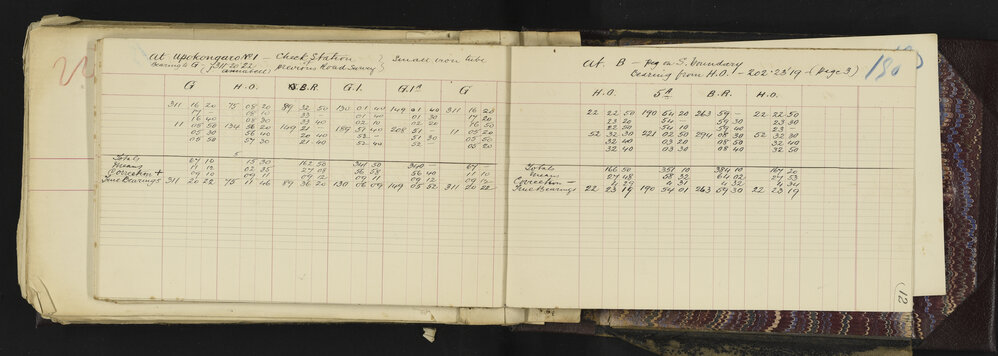 At Upokongaro No 1 — Check Station } Small iron tube
bearing to G - 311·20·22 } Previous Road Survey }
G H.O. B.R. G.1. G.1ᴬ G
311 16 20 75 08 20 89 32 50 130 01 40 149 01 40 311 16 23
17 — 08 10 33 — 01 40 01 30 17 20
16 40 08 30 33 40 02 10 02 20 16 50
11 05 50 134 56 20 149 21 — 189 51 40 208 51 — 11 05 20
05 30 56 40 20 40 52 — 51 30 05 50
05 50 57 30 21 40 52 40 52 — 05 20
Totals 67 10 15 30 162 50 341 50 340 — 67 —
Means 11 12 02 35 27 08 36 58 56 40 11 10
Correction + 09 10 09 11 09 12 09 11 09 12 09 12
True Bearings 311 20 22 75 11 46 89 36 20 130 06 09 149 05 52 311 20 22
At B — peg on S. boundary
bearing from H.O. — 202·23·19 — (page 3)
180
H.O. 5ᴬ B.R. H.O.
22 22 50 190 54 20 263 59 — 22 22 50
23 20 54 — 59 30 23 30
22 50 54 10 59 40 23 —
52 32 30 221 02 50 294 08 30 52 32 30
32 40 03 20 08 50 32 40
32 40 03 30 08 40 32 50
Totals 166 50 351 10 384 10 167 20
Means 27 48 58 32 64 02 27 53
Correction — 4 29 4 31 4 32 4 34
True Bearings 22 23 19 190 54 01 263 59 30 22 23 19
(12)